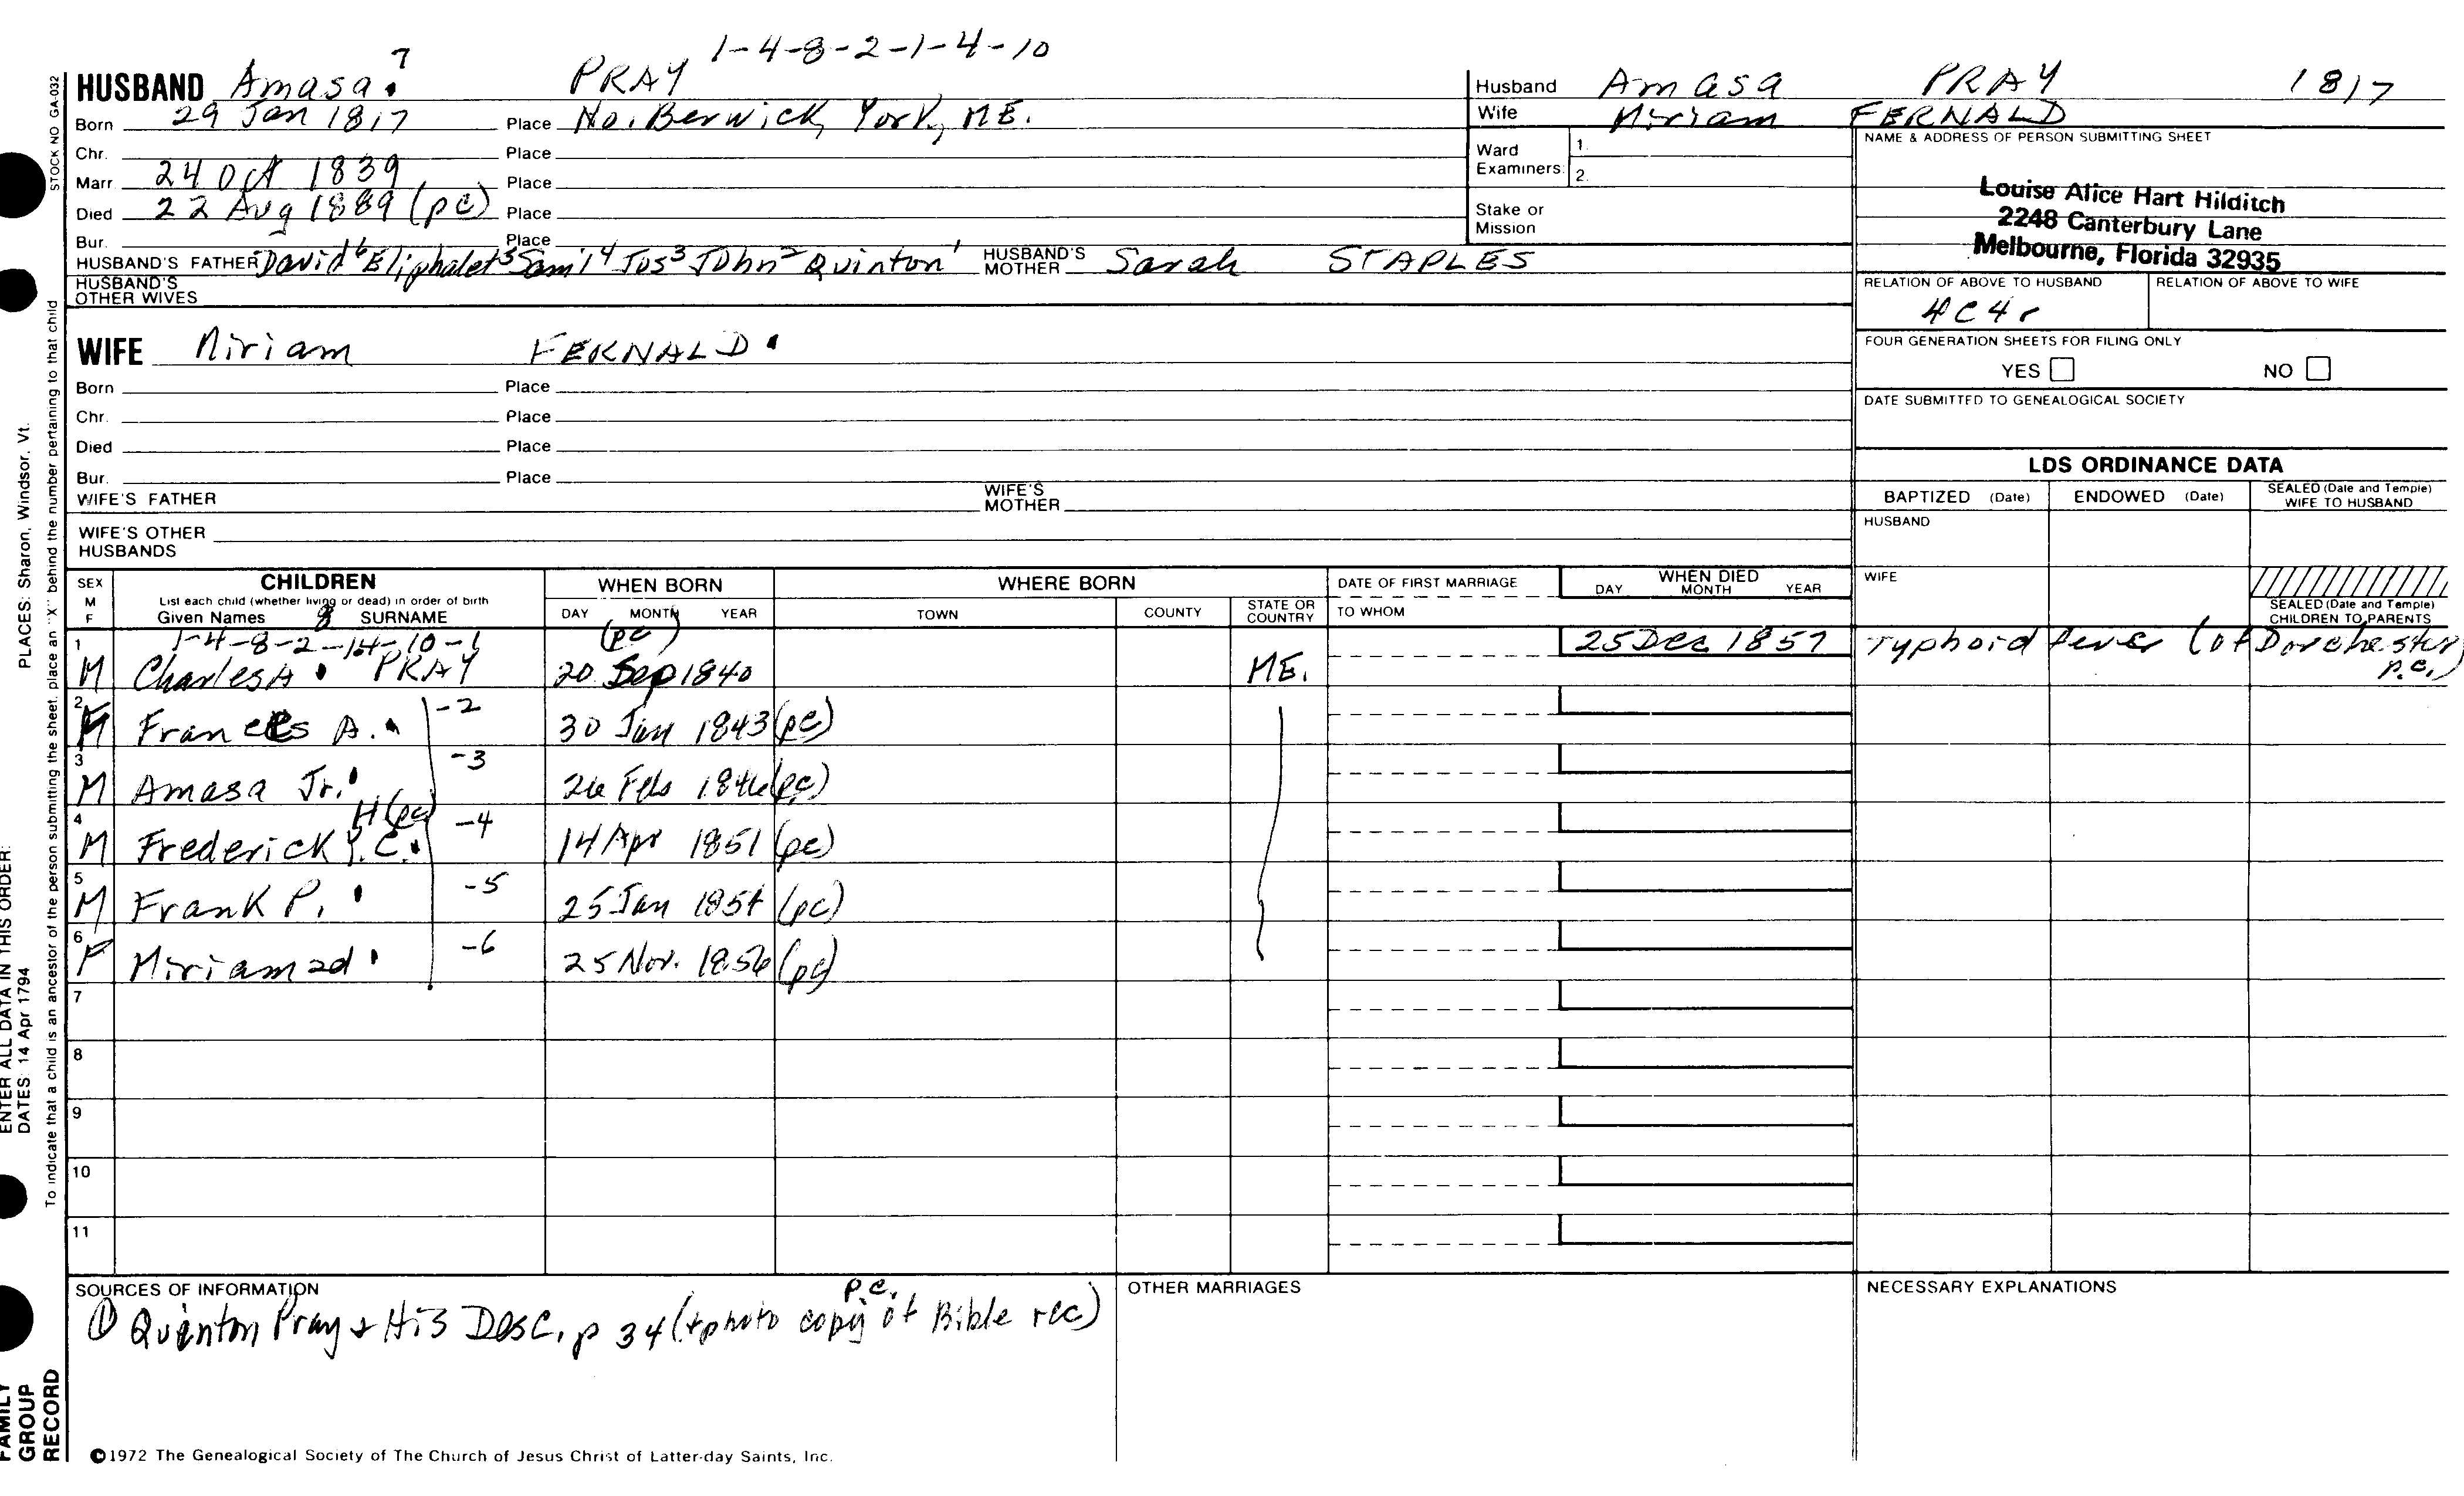 1-4-8-2-1-4-10
HUSBAND Amasa 7 PRAY
Born 29 Jan 1817 Place No. Berwick, York, ME.
Chr. Place
Marr. 24 Oct 1839 Place
Died 22 Aug 1889 (pc) Place
Bur. Place
HUSBAND'S FATHER David 6 Eliphalet 5 Sam'l 4 Jos 3 John 2 Quinton 1 HUSBAND'S MOTHER Sarah STAPLES
HUSBAND'S OTHER WIVES
WIFE Miriam FERNALD
Born Place
Chr. Place
Died Place
Bur. Place
WIFE'S FATHER WIFE'S MOTHER
WIFE'S OTHER HUSBANDS
Husband Amasa PRAY 1817
Wife Miriam FERNALD
Ward Examiners: 1. 2.
Stake or Mission
NAME & ADDRESS OF PERSON SUBMITTING SHEET
Louise Alice Hart Hilditch
2248 Canterbury Lane
Melbourne, Florida 32935
RELATION OF ABOVE TO HUSBAND RELATION OF ABOVE TO WIFE
4C4r
FOUR GENERATION SHEETS FOR FILING ONLY
YES NO
DATE SUBMITTED TO GENEALOGICAL SOCIETY
LDS ORDINANCE DATA
BAPTIZED (Date) ENDOWED (Date) SEALED (Date and Temple) WIFE TO HUSBAND
HUSBAND
WIFE
SEALED (Date and Temple) CHILDREN TO PARENTS
SEX M F CHILDREN WHEN BORN WHERE BORN DATE OF FIRST MARRIAGE WHEN DIED
List each child (whether living or dead) in order of birth
Given Names 8 SURNAME DAY MONTH YEAR TOWN COUNTY STATE OR COUNTRY TO WHOM DAY MONTH YEAR
1-4-8-2-1-4-10-1 (pc)
1 M Charles A. PRAY 20 Sep 1840 ME. 25 Dec 1857 Typhoid fever (of Dorchester p.c.)
2 Frances A. -2 30 Jan 1843 (pc)
3 M Amasa Jr. -3 26 Feb 1846 (pc)
H (pc)
4 M Frederick C. -4 14 Apr 1851 (pc)
5 M Frank P. -5 25 Jan 1854 (pc)
6 F Miriam 2d -6 25 Nov. 1856 (pc)
7
8
9
10
11
SOURCES OF INFORMATION
p.c.
① Quinton Pray & His Desc, p 34 (+photo copy of Bible rec)
OTHER MARRIAGES
NECESSARY EXPLANATIONS
©1972 The Genealogical Society of The Church of Jesus Christ of Latter-day Saints, Inc.
STOCK NO GA-032
To indicate that a child is an ancestor of the person submitting the sheet, place an "X" behind the number pertaining to that child
PLACES: Sharon, Windsor, Vt.
ENTER ALL DATA IN THIS ORDER:
DATES: 14 Apr 1794
FAMILY GROUP RECORD